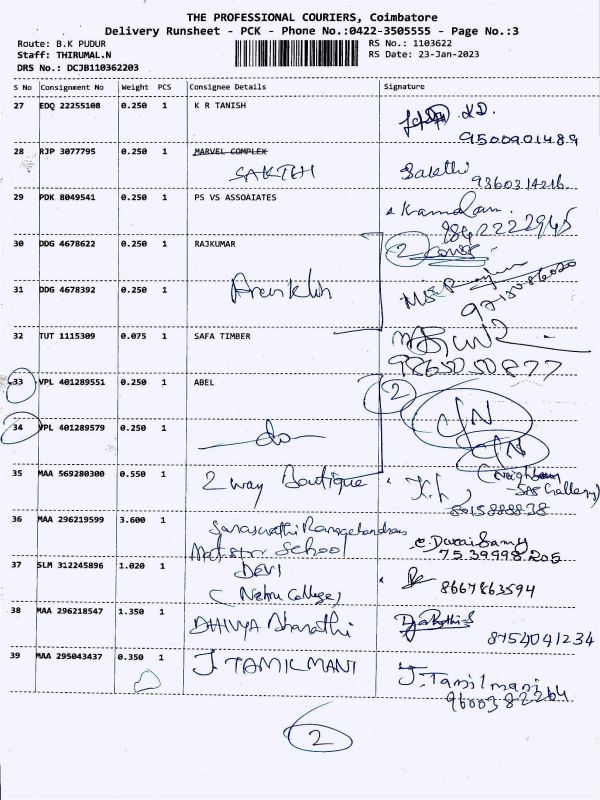 THE PROFESSIONAL COURIERS, Coimbatore
Delivery Runsheet - PCK - Phone No.:0422-3505555 - Page No.:3
Route: B.K PUDUR
RS No.: 1103622
Staff: THIRUMAL.N
RS Date: 23-Jan-2023
DRS No.: DCJB110362203
S No Consignment No Weight PCS Consignee Details Signature
27 EDQ 22255108 0.250 1 K R TANISH
9500901489
28 RJP 3077795 0.250 1 MARVEL COMPLEX
SAKTHI Sakthi
9360314216
29 PDK 8049541 0.250 1 PS VS ASSOAIATES
30 DDG 4678622 0.250 1 RAJKUMAR 2
31 DDG 4678392 0.250 1
32 TUT 1115309 0.075 1 SAFA TIMBER
9865050877
33 VPL 401289551 0.250 1 ABEL 2
34 VPL 401289579 0.250 1 do
35 MAA 569280300 0.550 1 2 way Boutique
36 MAA 296219599 3.600 1
School
7539998205
37 SLM 312245896 1.020 1 DEVI
(Nehru College) 8667863594
38 MAA 296218547 1.350 1 DHIVYA Bharathi
8754041234
39 MAA 295043437 0.350 1 J. TAMILMANI J. Tamilmani
9600382264
2